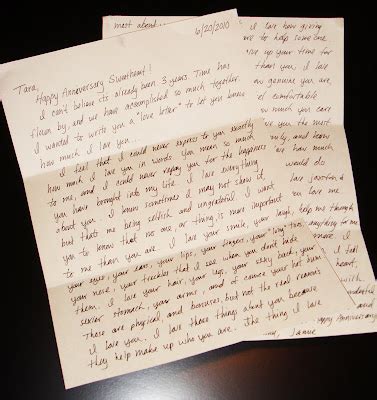 6/20/2010
Tara,
Happy Anniversary Sweetheart!
I can't believe its already been 3 years. Time has
flown by, and we have accomplished so much together.
I wanted to write you a "love letter" to let you know
how much I love you...
I feel that I could never express to you exactly
how much I love you in words. You mean so much
to me, and I could never repay you for the happiness
you have brought into my life. I love everything
about you. I know sometimes I may not show it,
but thats me being selfish and ungrateful. I want
you to know that no one, or thing is more important
to me than you are. I love your smile, your laugh,
your eyes, your ears, your lips, your fingers, your long toes,
your nose, your freckles that I see when you don't hide
them. I love your hair, your legs, your silky back, your
sexier stomach, your arms, and of course your hot bum
Those are physical, and bonuses, but not the real reasons
I love you. I love those things about you because
they help make up who you are. The thing I love
most about
I love how giving
me to help someone
give up your time for
than you. I love
how genuine you are
comfortable
how much you care
love the most
and learn
how much
would do
love
you love me
help me through
anything for me
more I
I feel
heart,
with
Happy Anniversary
Jamie